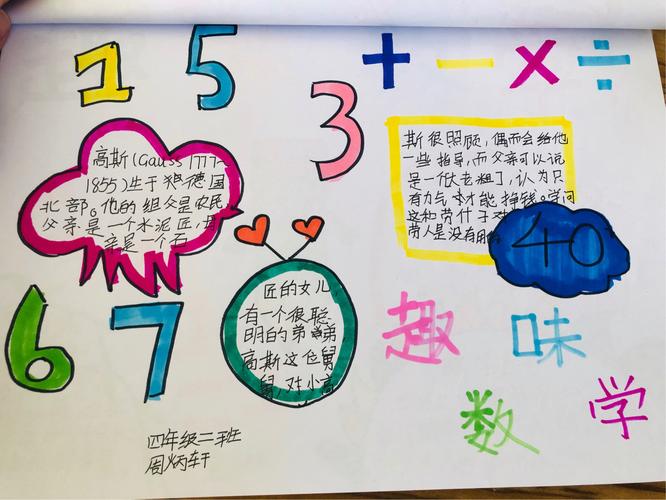 1
5
3
+ − × ÷
高斯(Gauss 1777~
1855)生于
德国
北部。他的组父是农民,
父亲是一个水泥匠,
亲是一个石
匠的女儿
有一个很聪
明的弟弟
高斯这
舅
舅,对小高
斯很照顾,偶而会给他
一些指导,而父亲可以说
是一个大老粗
,认为只
有力气才能挣钱。学问
这种劳什子对
劳人是没有用
40
6
7
趣味
数学
四年级二班
周炳轩